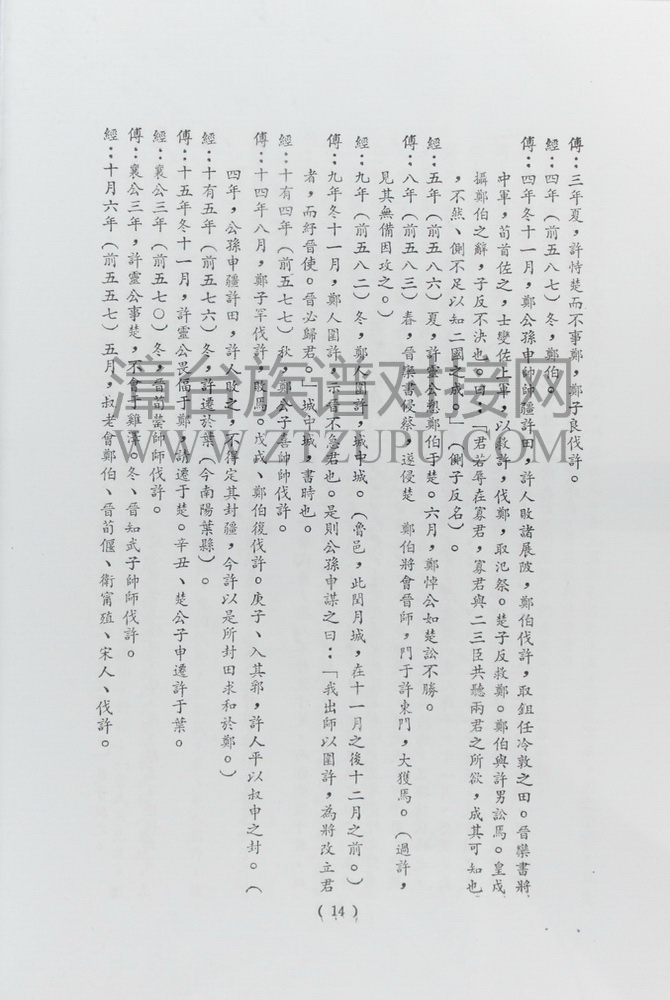 傳：三年夏，許恃楚而不事鄭，鄭子良伐許。
經：四年（前五八七）冬，鄭伯。
傳：四年冬十一月，鄭公孫申師師疆許田，許人敗諸展陂，鄭伯伐許，取鉏任冷敦之田。晉欒書將
中軍，荀首佐之，士燮佐上軍，以救許，伐鄭，取氾祭。楚子反救鄭。鄭伯與許男訟焉。皇戌
攝鄭伯之辭，子反不決也。曰，「君若辱在寡君，寡君與二三臣共聽兩君之所欲，成其可知也
，不然、側不足以知二國之成。」（側子反名）。
經：五年（前五八六）夏，許靈公愬鄭伯于楚。六月，鄭悼公如楚訟不勝。
傳：八年（前五八三）春，晉欒書侵蔡，遂侵楚　鄭伯將會晉師，門于許東門，大獲焉。（過許，
見其無備因攻之。）
經：九年（前五八二）冬，鄭人圍許，城中城。（魯邑，此閏月城，在十一月之後十二月之前。）
傳：九年冬十一月，鄭人圍許，示晉不急君也。是則公孫申謀之曰：「我出師以圍許，為將改立君
者，而紓晉使。晉必歸君。」城中城，書時也。
經：十有四年（前五七七）秋，鄭公子喜帥師伐許。
傳：十四年八月，鄭子罕伐許，敗焉。戊戌、鄭伯復伐許。庚子、入其郛，許人平以叔申之封。（
四年，公孫申疆許田，許人敗之，不得定其封疆，今許以是所封田求和於鄭。）
經：十有五年（前五七六）冬，許遷於葉（今南陽葉縣）。
傳：十五年冬十一月，許靈公畏偪于鄭，請遷于楚。辛丑、楚公子申遷許于葉。
經：襄公三年（前五七〇）冬，晉荀罃師師伐許。
傳：襄公三年，許靈公事楚，不會于雞澤。冬、晉知武子帥師伐許。
經：十月六年（前五五七）五月，叔老會鄭伯、晉荀偃、衛甯殖、宋人、伐許。
(14)
漳台族谱对接网
WWW.ZTZUPU.COM